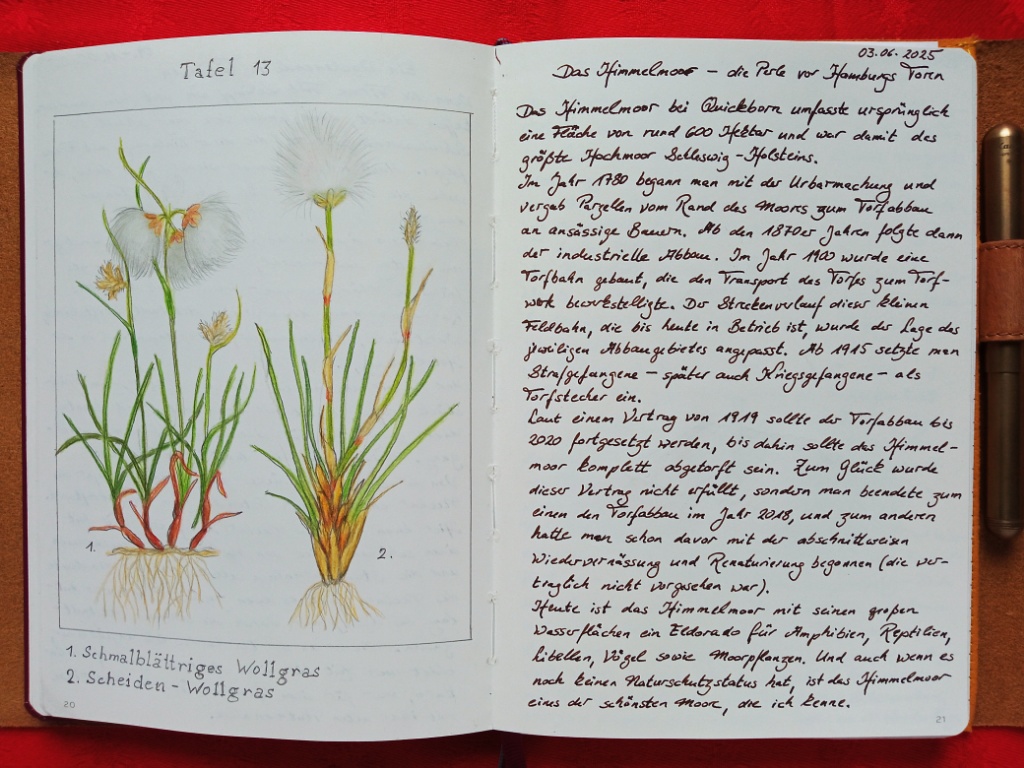 Tafel 13
1.
2.
1. Schmalblättriges Wollgras
2. Scheiden-Wollgras
20
03.06.2025
Das Himmelmoor – die Perle vor Hamburgs Toren
Das Himmelmoor bei Quickborn umfasste ursprünglich
eine Fläche von rund 600 Hektar und war damit das
größte Hochmoor Schleswig-Holsteins.
Im Jahr 1780 begann man mit der Urbarmachung und
vergab Parzellen vom Rand des Moores zum Torfabbau
an ansässige Bauern. Ab den 1870er Jahren folgte dann
der industrielle Abbau. Im Jahr 1900 wurde eine
Torfbahn gebaut, die den Transport des Torfes zum Torf-
werk bewerkstelligte. Der Streckenverlauf dieser kleinen
Feldbahn, die bis heute in Betrieb ist, wurde der Lage des
jeweiligen Abbaugebietes angepasst. Ab 1915 setzte man
Strafgefangene – später auch Kriegsgefangene – als
Torfstecher ein.
Laut einem Vertrag von 1919 sollte der Torfabbau bis
2020 fortgesetzt werden, bis dahin sollte das Himmel-
moor komplett abgetorft sein. Zum Glück wurde
dieser Vertrag nicht erfüllt, sondern man beendete zum
einen den Torfabbau im Jahr 2018, und zum anderen
hatte man schon davor mit der abschnittweisen
Wiedervernässung und Renaturierung begonnen (die ver-
traglich nicht vorgesehen war).
Heute ist das Himmelmoor mit seinen großen
Wasserflächen ein Eldorado für Amphibien, Reptilien,
Libellen, Vögel sowie Moorpflanzen. Und auch wenn es
noch keinen Naturschutzstatus hat, ist das Himmelmoor
eines der schönsten Moore, die ich kenne.
21